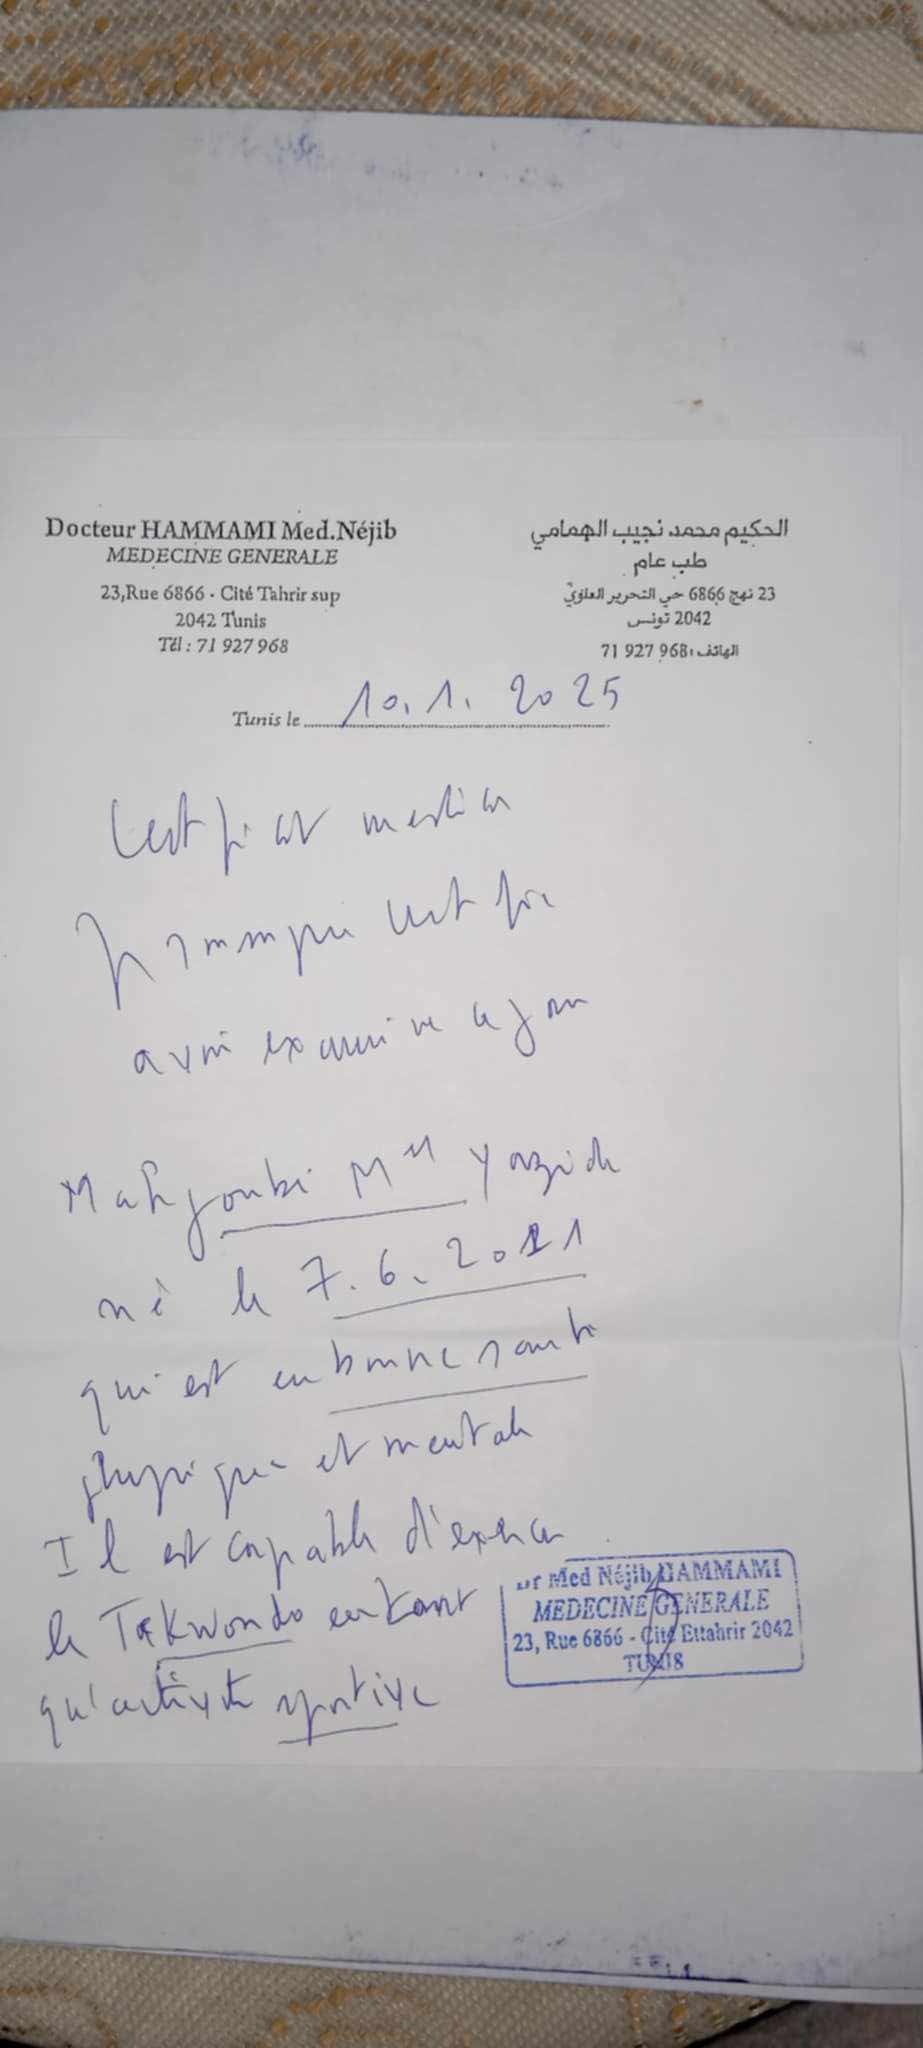 Docteur HAMMAMI Med.Néjib
MEDECINE GENERALE
23,Rue 6866 - Cité Tahrir sup
2042 Tunis
Tél : 71 927 968
الحكيم محمد نجيب الهمامي
طب عام
23 نهج 6866 حي التحرير العلوي
2042 تونس
الهاتف : 71 927 968
Tunis le 10.1.2025
Certificat medical
Je soussigné certifie
avoir examiné ce jour
Mahjoubi Med Yazid
né le 7.6.2011
qui est en bonne santé
physique et mentale
Il est capable d'exercer
le Taekwondo en tant
qu'activité sportive
Dr Med Néjib HAMMAMI
MEDECINE GENERALE
23, Rue 6866 - Cité Ettahrir 2042
TUNIS